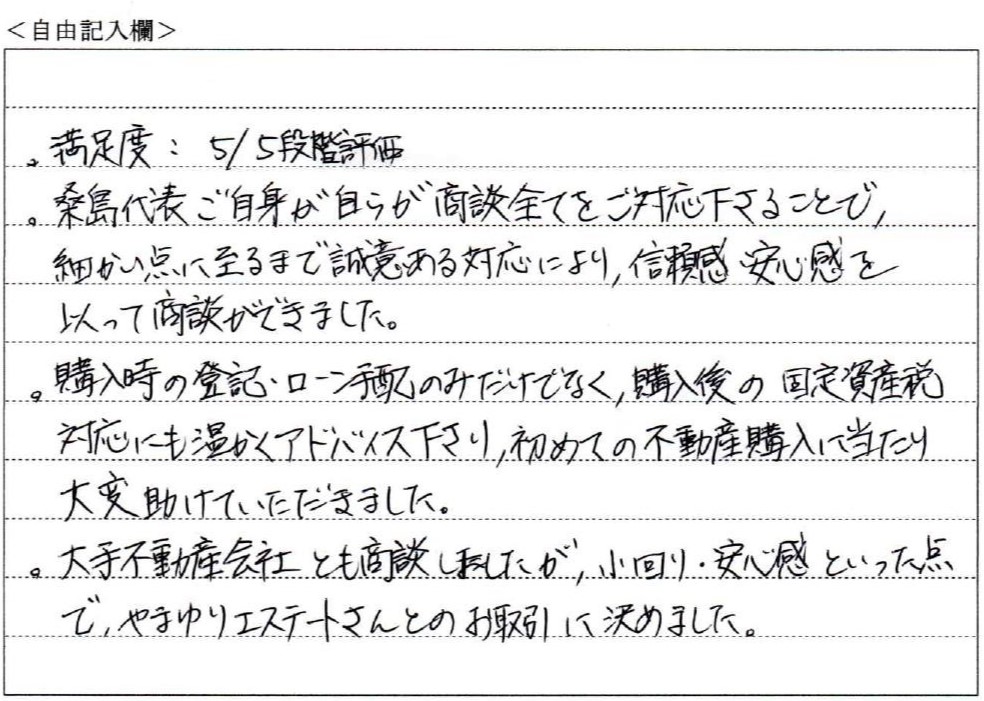 ＜自由記入欄＞
。満足度： 5/5段階評価
。桑島代表ご自身が自らが商談全てをご対応下さることで,
細かい点に至るまで誠意ある対応により,信頼感 安心感を
以って商談ができました。
。購入時の登記・ローン手配のみだけでなく,購入後の固定資産税
対応にも温かくアドバイス下さり,初めての不動産購入に当たり
大変助けていただきました。
。大手不動産会社とも商談しましたが,小回り・安心感といった点
で,やまゆりエステートさんとのお取引に決めました。